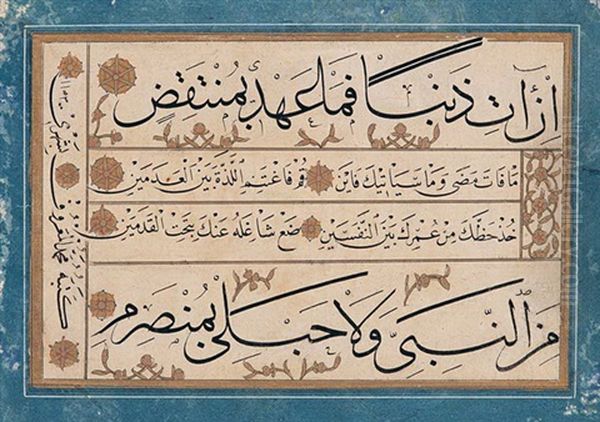 اِنْ اٰتِ ذَنْبًا فَمَا عَهْدِي بِمُنْتَقِضٍ
مَا فَاتَ مَضٰى وَمَا سَيَاتِيكَ فَاَيْنَ قُمْ فَاغْتَنِمِ اللَّذَّةَ بَيْنَ الْعَدَمَيْنِ
خُذْ حَظَّكَ مِنْ عُمْرِكَ بَيْنَ النَّفَسَيْنِ ضَعْ شَاغِلَهُ عَنْكَ بِتَحْتِ الْقَدَمَيْنِ
مِنَ النَّبِيِّ وَلَا حَبْلِي بِمُنْصَرِمِ
كتبه محمد المعروف